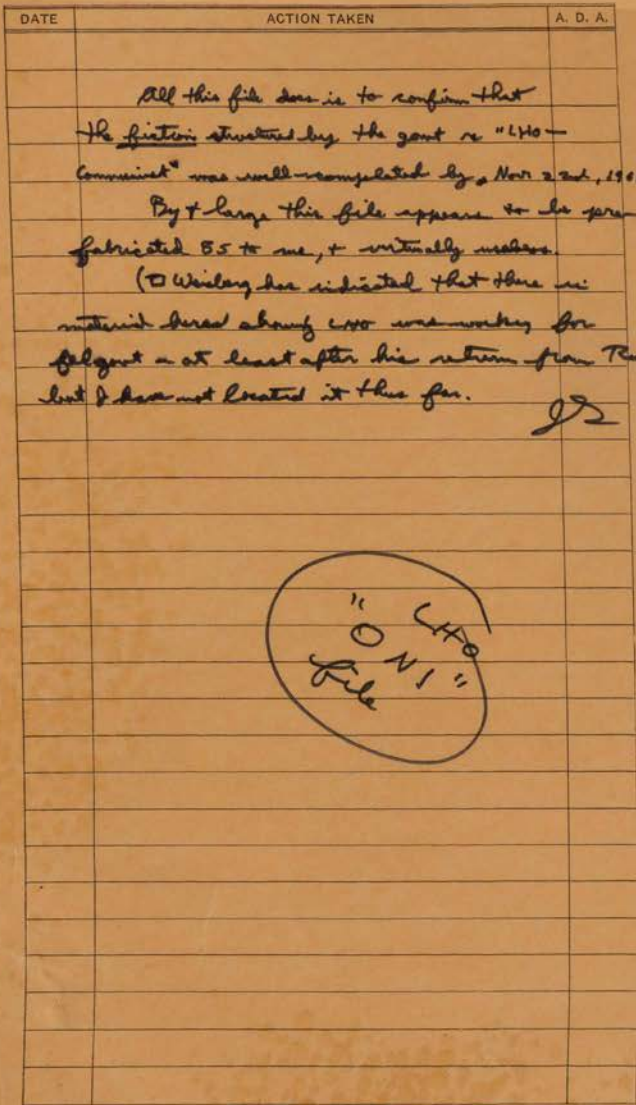 DATE ACTION TAKEN A. D. A.
All this file does is to confirm that
the fiction structured by the govt re "LHO –
Communist" was well-completed by Nov. 22nd, 196
By + large this file appears to be pre-
fabricated BS to me, + virtually useless.
( Weisberg has indicated that there is
material herein showing LHO was working for
fed govt – at least after his return from Ru
but I have not located it thus far.
JG
LHO
"ONI"
file